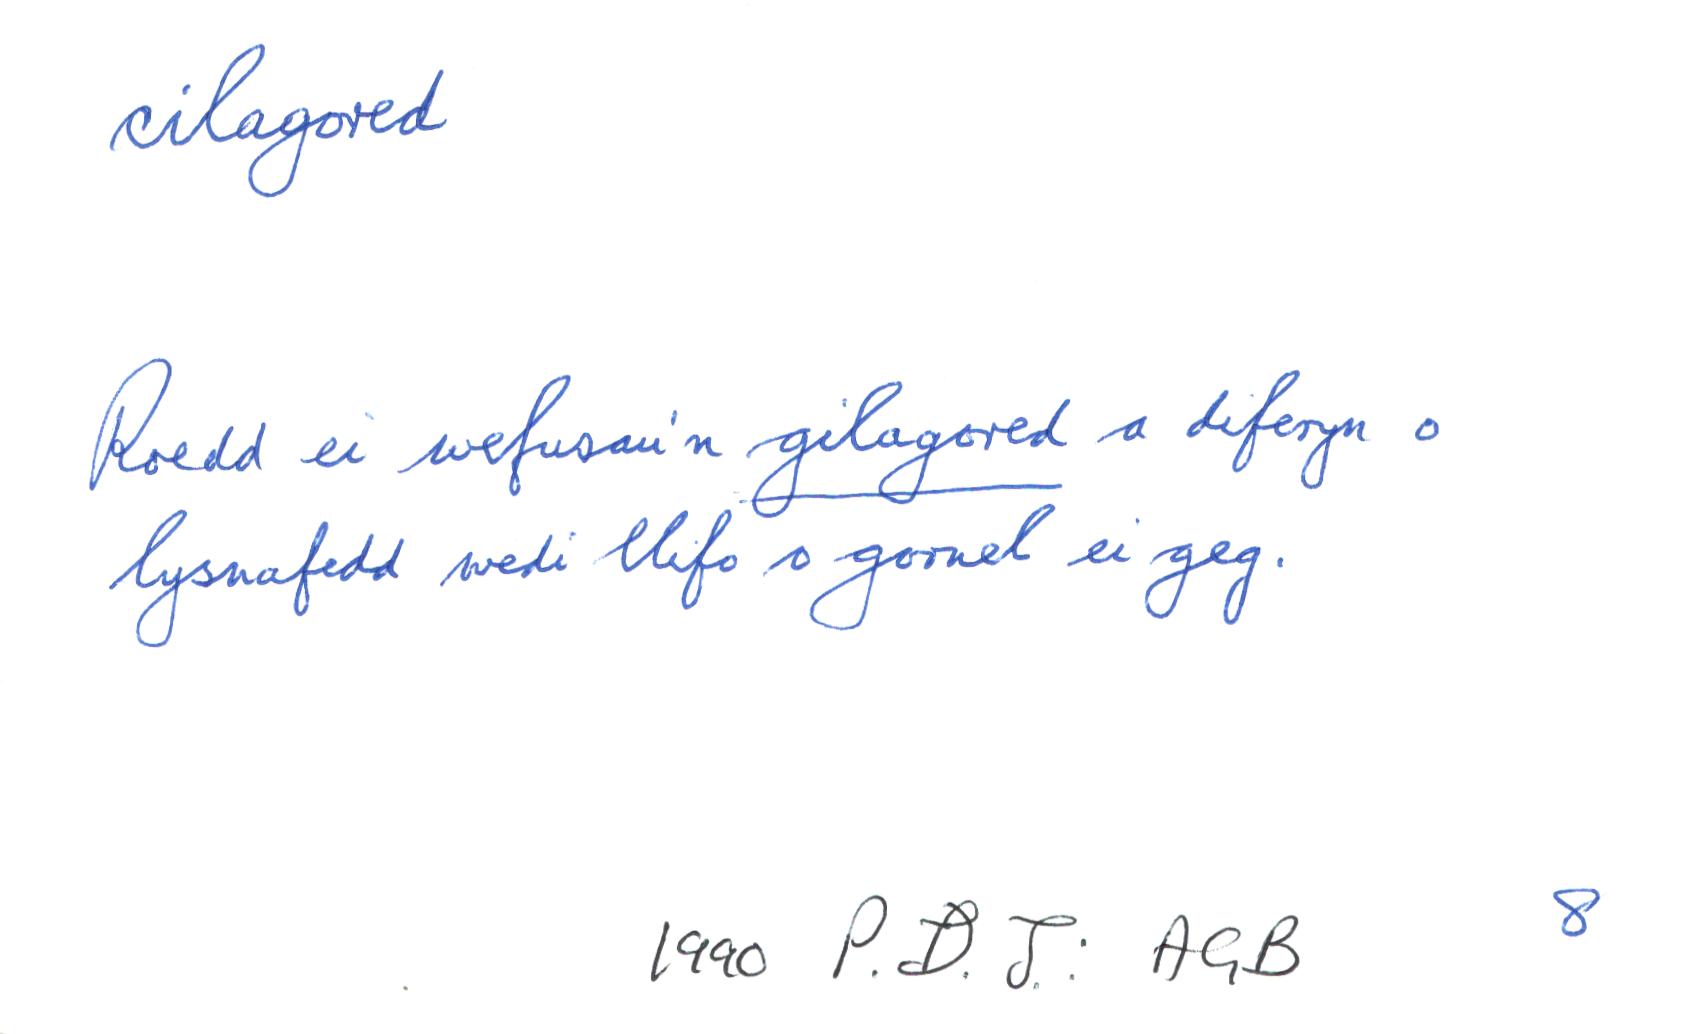 cilagored
Roedd ei wefusau'n gilagored a diferyn o
lysnafedd wedi llifo o gornel ei geg.
1990 P.D.J.: AGB 8